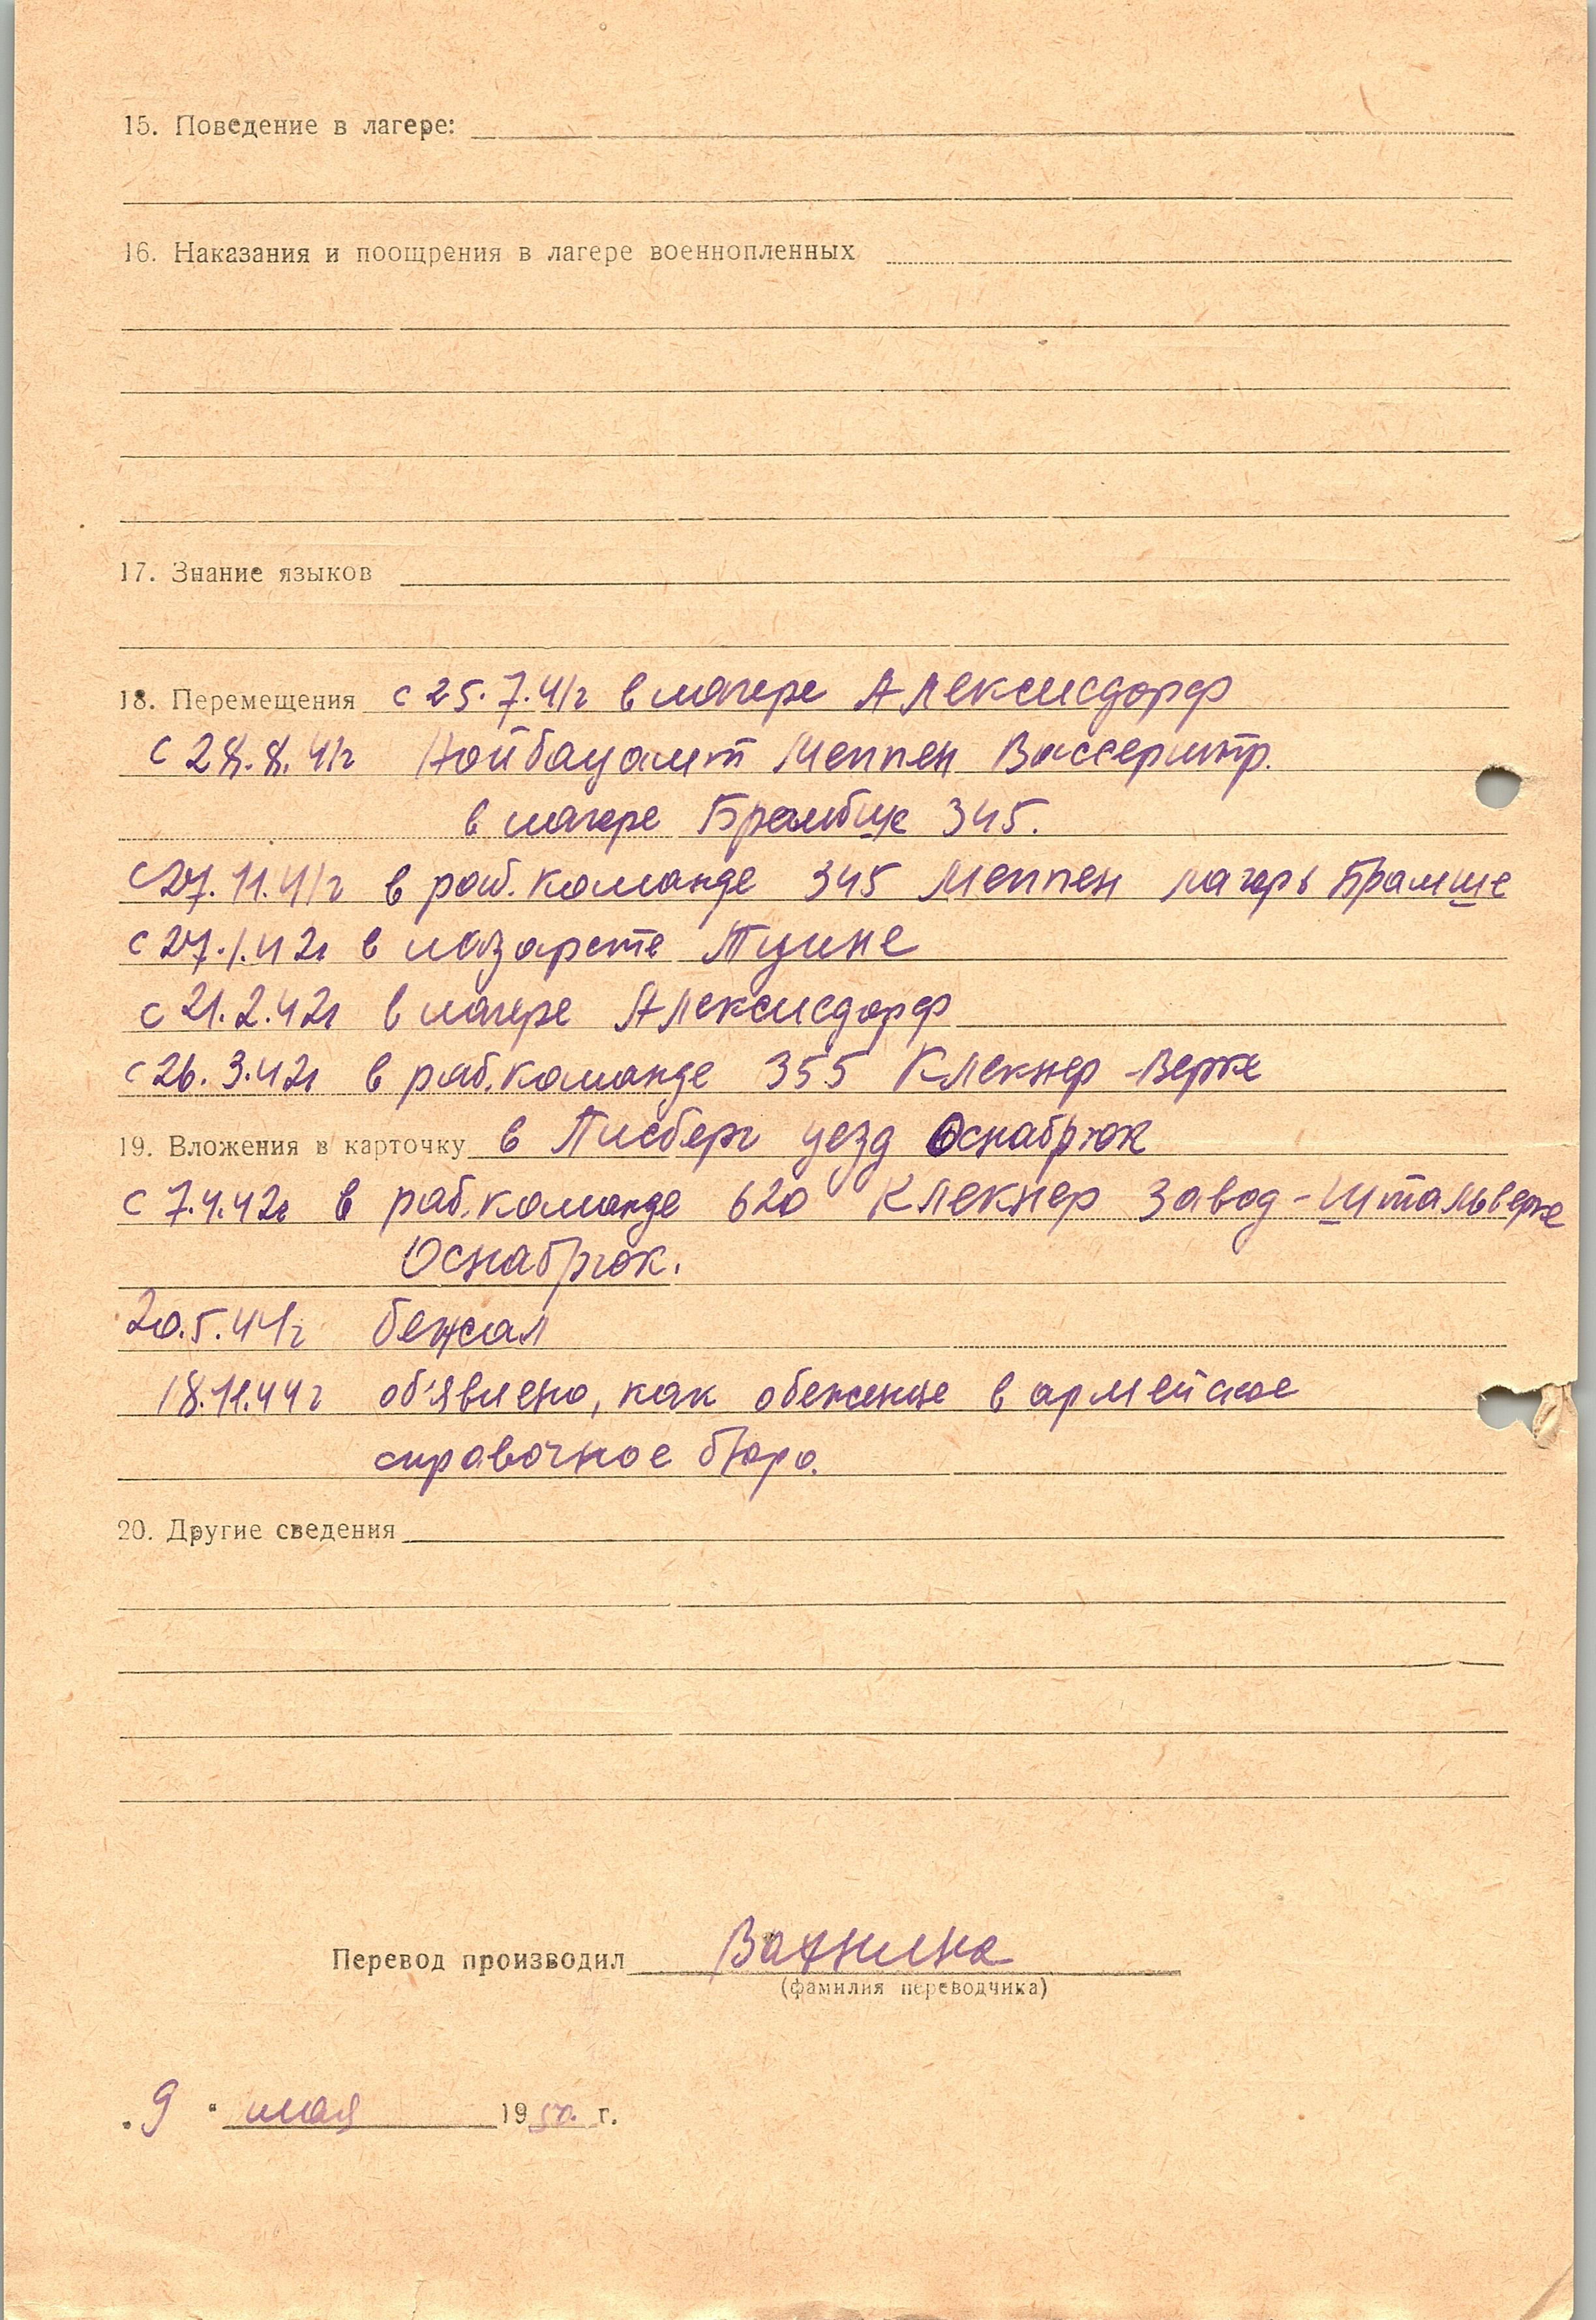 15. Поведение в лагере:
16. Наказания и поощрения в лагере военнопленных
17. Знание языков
18. Перемещения с 25.7.41г в лагере Алексисдорф
с 28.8.41г Нойбауамт Меппен Вассерштр.
в лагере 345.
с 27.11.41г в раб. команде 345 Меппен лагерь Брамше
с 27.1.42г в лазарете Туине
с 21.2.42г в лагере Алексисдорф
с 26.3.42г в раб. команде 355 Клекнер-Верке
19. Вложения в карточку в Писберг уезд Оснабрюк
с 7.4.42г в раб. команде 620 Клекнер завод-Штальверке
Оснабрюк.
20.5.44г бежал
18.11.44г об'явлено, как в армейское
справочное бюро.
20. Другие сведения
Перевод производил
(фамилия переводчика)
"9" мая 1950 г.